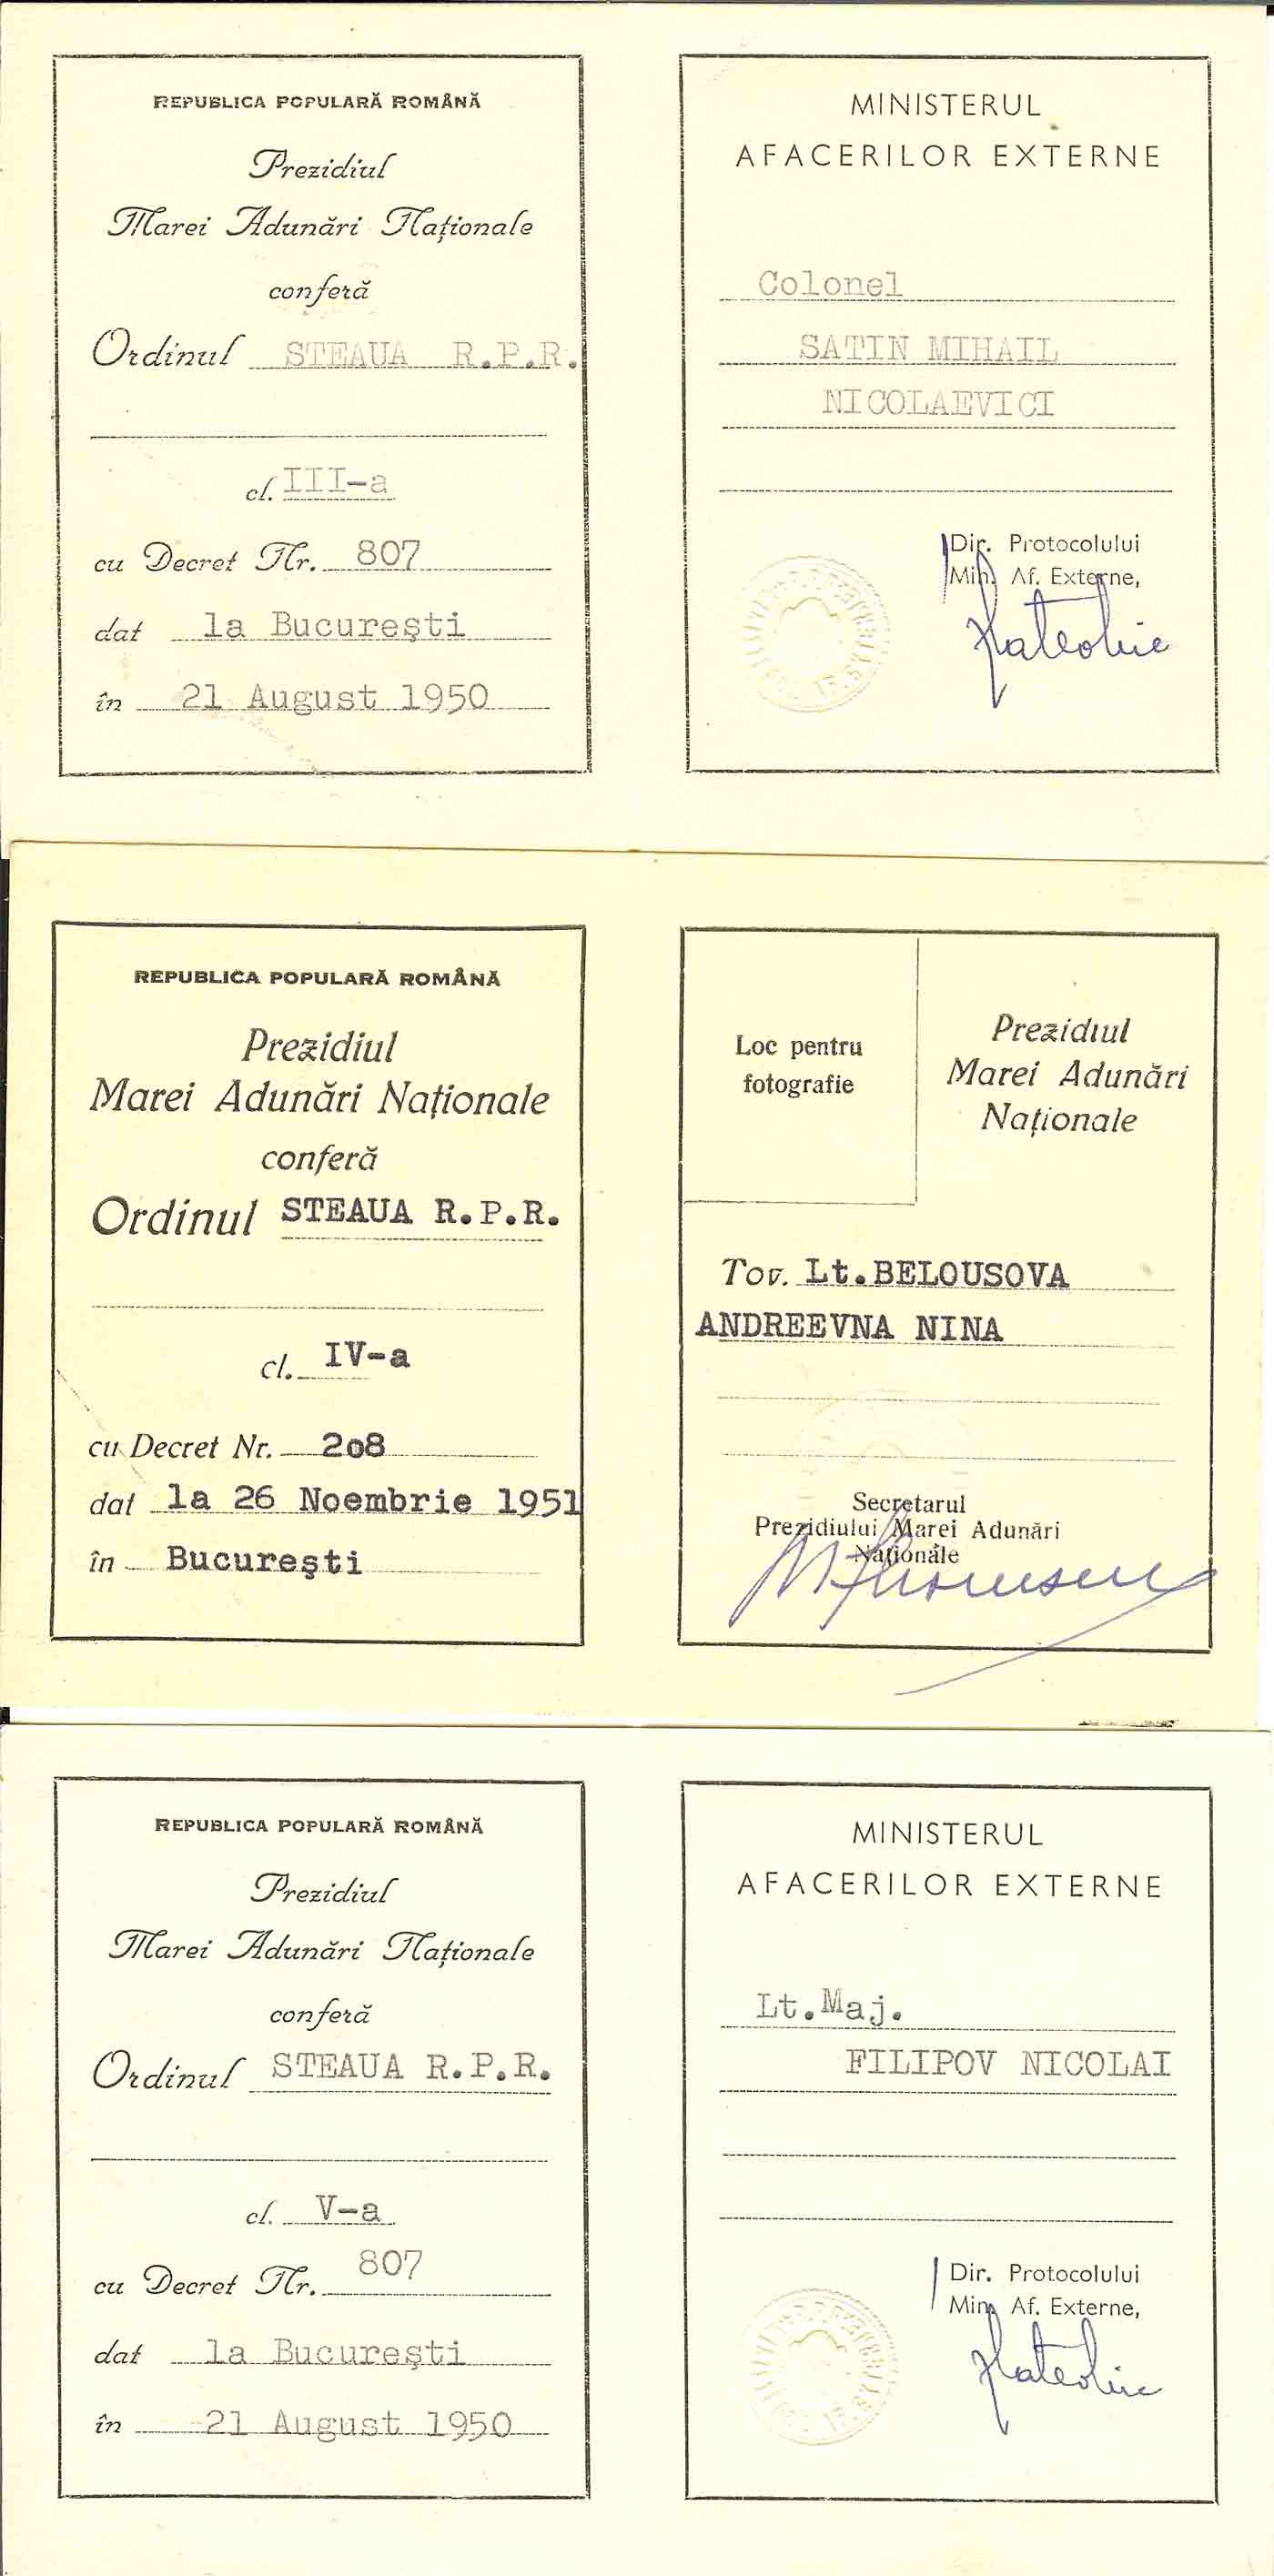 REPUBLICA POPULARĂ ROMÂNĂ
Prezidiul
Marei Adunări Naționale
conferă
Ordinul STEAUA R.P.R.
cl. III-a
cu Decret Nr. 807
dat la Bucureşti
în 21 August 1950
MINISTERUL
AFACERILOR EXTERNE
Colonel
SATIN MIHAIL
NICOLAEVICI
Dir. Protocolului
Min. Af. Externe,
REPUBLICA POPULARĂ ROMÂNĂ
Prezidiul
Marei Adunări Naționale
conferă
Ordinul STEAUA R.P.R.
cl. IV-a
cu Decret Nr. 2o8
dat la 26 Noembrie 1951
în Bucureşti
Loc pentru
fotografie
Prezidiul
Marei Adunări
Naționale
Tov. Lt.BELOUSOVA
ANDREEVNA NINA
Secretarul
Prezidiului Marei Adunări
Naționale
REPUBLICA POPULARĂ ROMÂNĂ
Prezidiul
Marei Adunări Naționale
conferă
Ordinul STEAUA R.P.R.
cl. V-a
cu Decret Nr. 807
dat la Bucureşti
în 21 August 1950
MINISTERUL
AFACERILOR EXTERNE
Lt.Maj.
FILIPOV NICOLAI
Dir. Protocolului
Min. Af. Externe,